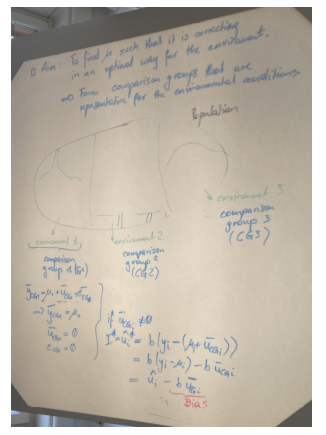 Aim: To find μ such that it is correcting
in an optimal way for the environment.
⇒ Form comparison groups that are
representative for the environmental conditions
Population
environment 3
comparison
group 3
(CG3)
environment 1
comparison
group 1 (CG1)
environment 2
comparison
group 2
(CG2)
ȳCG1 = μ1 + ūCG1 + ēCG1
⇒ ȳCG1 = μ1
ūCG1 = 0
ēCG1 = 0
if ūCGi ≠ 0
I = ûi = b(yi - (μi + ūCGi))
= b(yi - μi) - b ūCGi
= ûi - b ūCGi
Bias